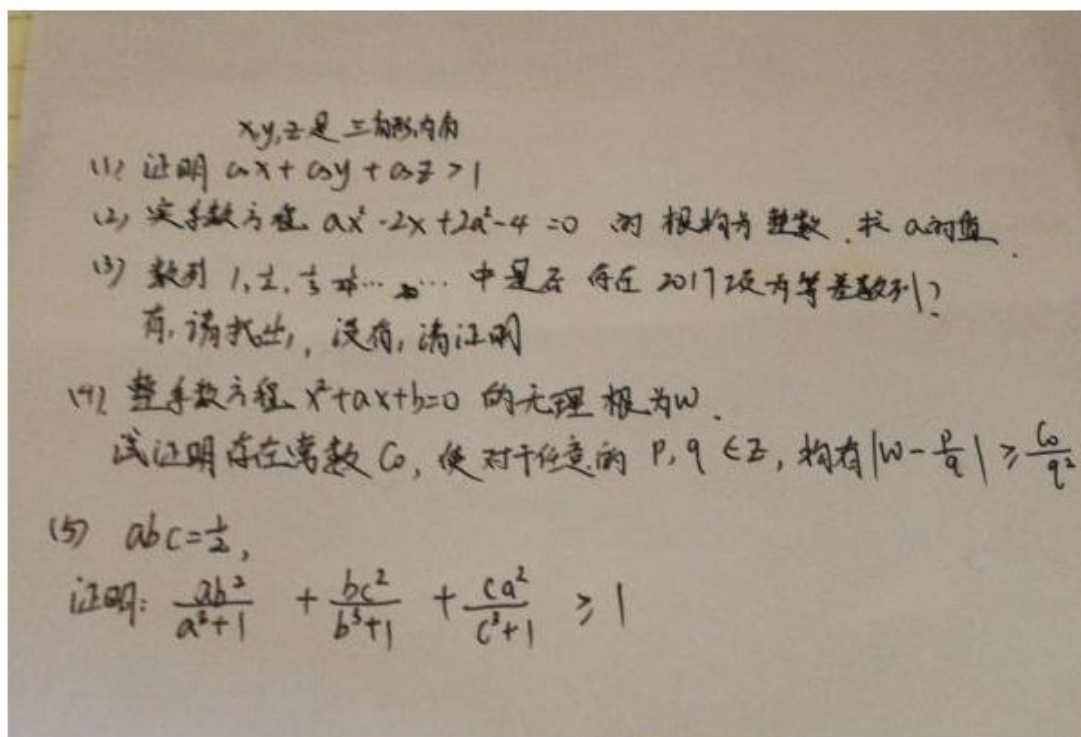 x,y,z是三角形内角
(1) 证明 cosx + cosy + cosz > 1
(2) 实系数方程 ax²-2x+2a²-4=0 的根均为整数,求a的值.
(3) 数列 1, 1/2, 1/3, 1/4 ... 中是否存在2017项为等差数列?
有,请找出,没有,请证明
(4) 整系数方程 x²+ax+b=0 的无理根为w.
试证明存在常数 C₀, 使对于任意的 p, q ∈ Z, 均有 |w - p/q| ≥ C₀/q²
(5) abc=1/2,
证明: ab²/(a³+1) + bc²/(b³+1) + ca²/(c³+1) ≥ 1